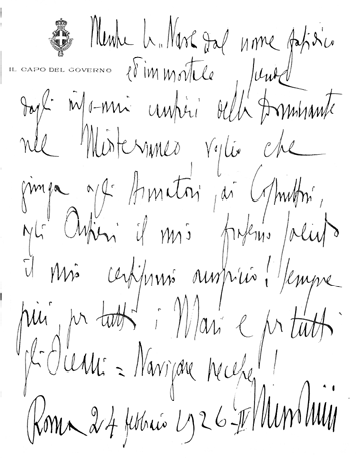 IL CAPO DEL GOVERNO
Mentre la Nave dal nome fatidico
ed immortale, scende
dagli cantieri della Dominante
nel Mediterraneo, voglio che
giunga agli Armatori, ai Costruttori,
agli Operai il mio fraterno saluto
il mio auspicio! Sempre
più, per tutti i Mari e per tutti
gli Oceani = Navigare necesse!
Roma 24 febbraio 1926-IV Mussolini